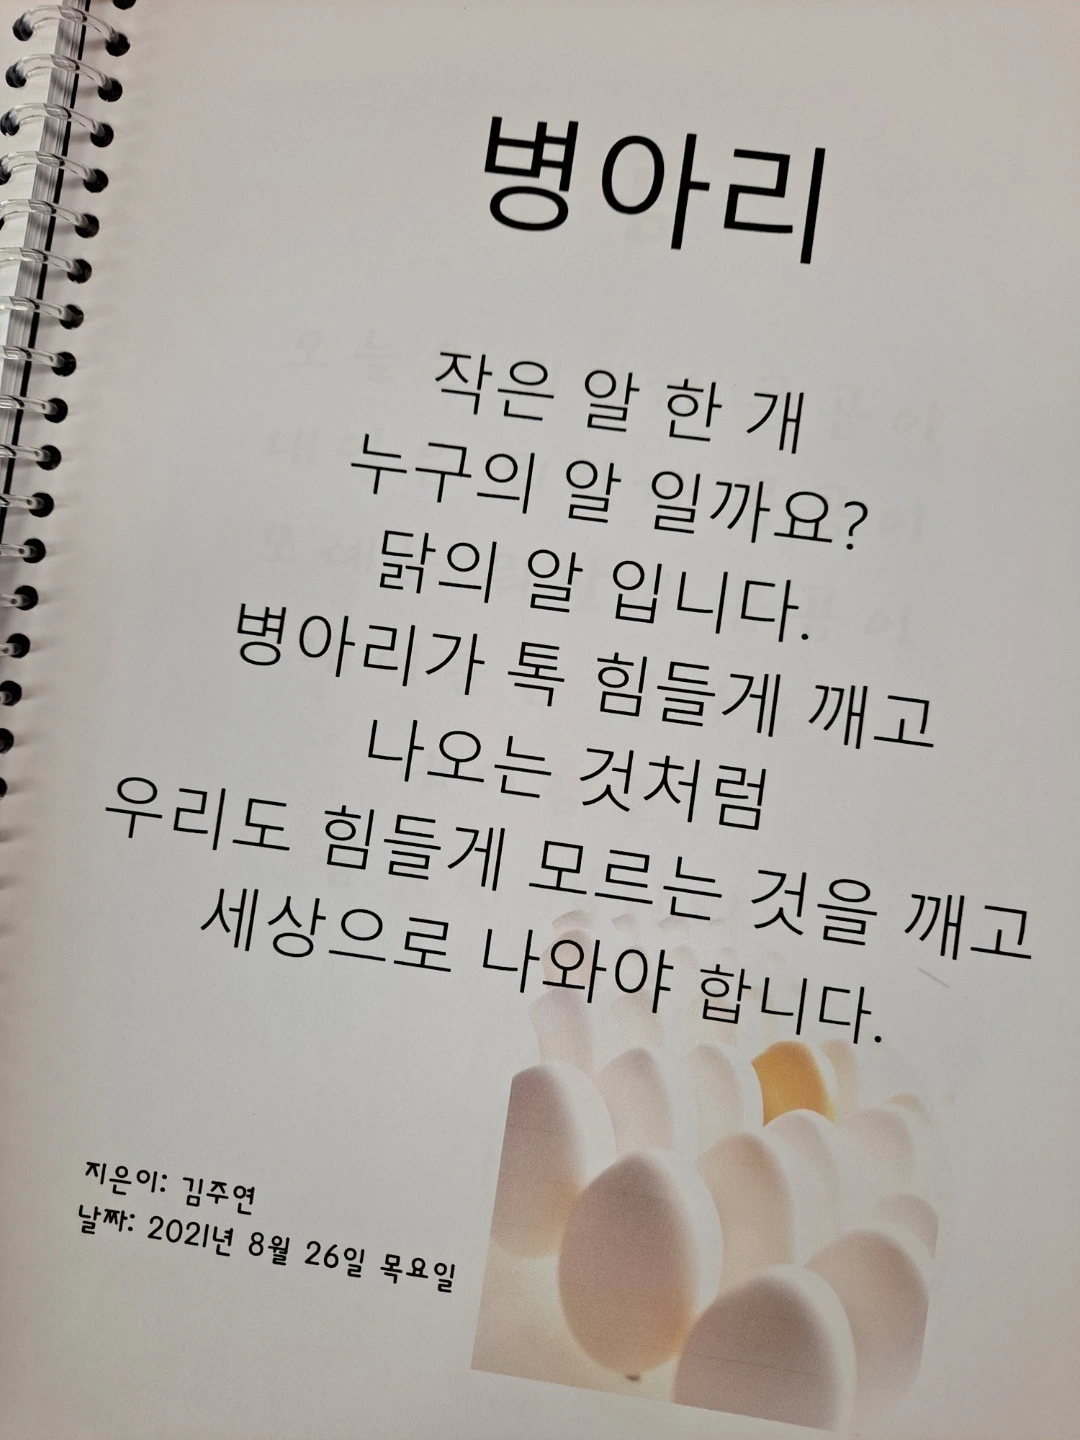 병아리
작은 알 한 개
누구의 알 일까요?
닭의 알 입니다.
병아리가 톡 힘들게 깨고
나오는 것처럼
우리도 힘들게 모르는 것을 깨고
세상으로 나와야 합니다.
지은이: 김주연
날짜: 2021년 8월 26일 목요일